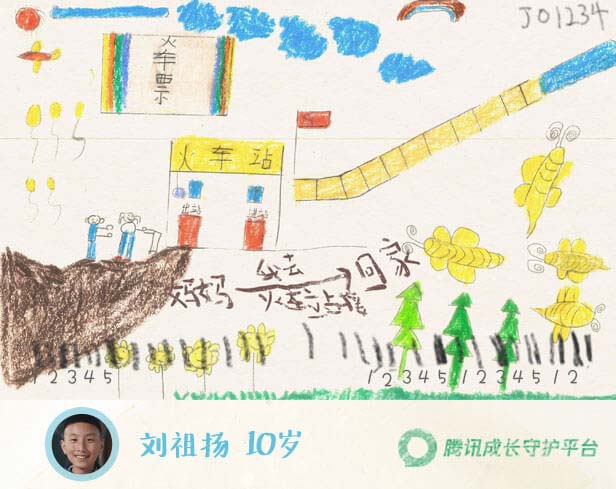 JO1234
火车票
火车站
出站 进站
妈妈 我去 回家
火车站接
1 2 3 4 5 1 2 3 4 5 1 2 3 4 5 1 2
刘祖扬 10岁
腾讯成长守护平台